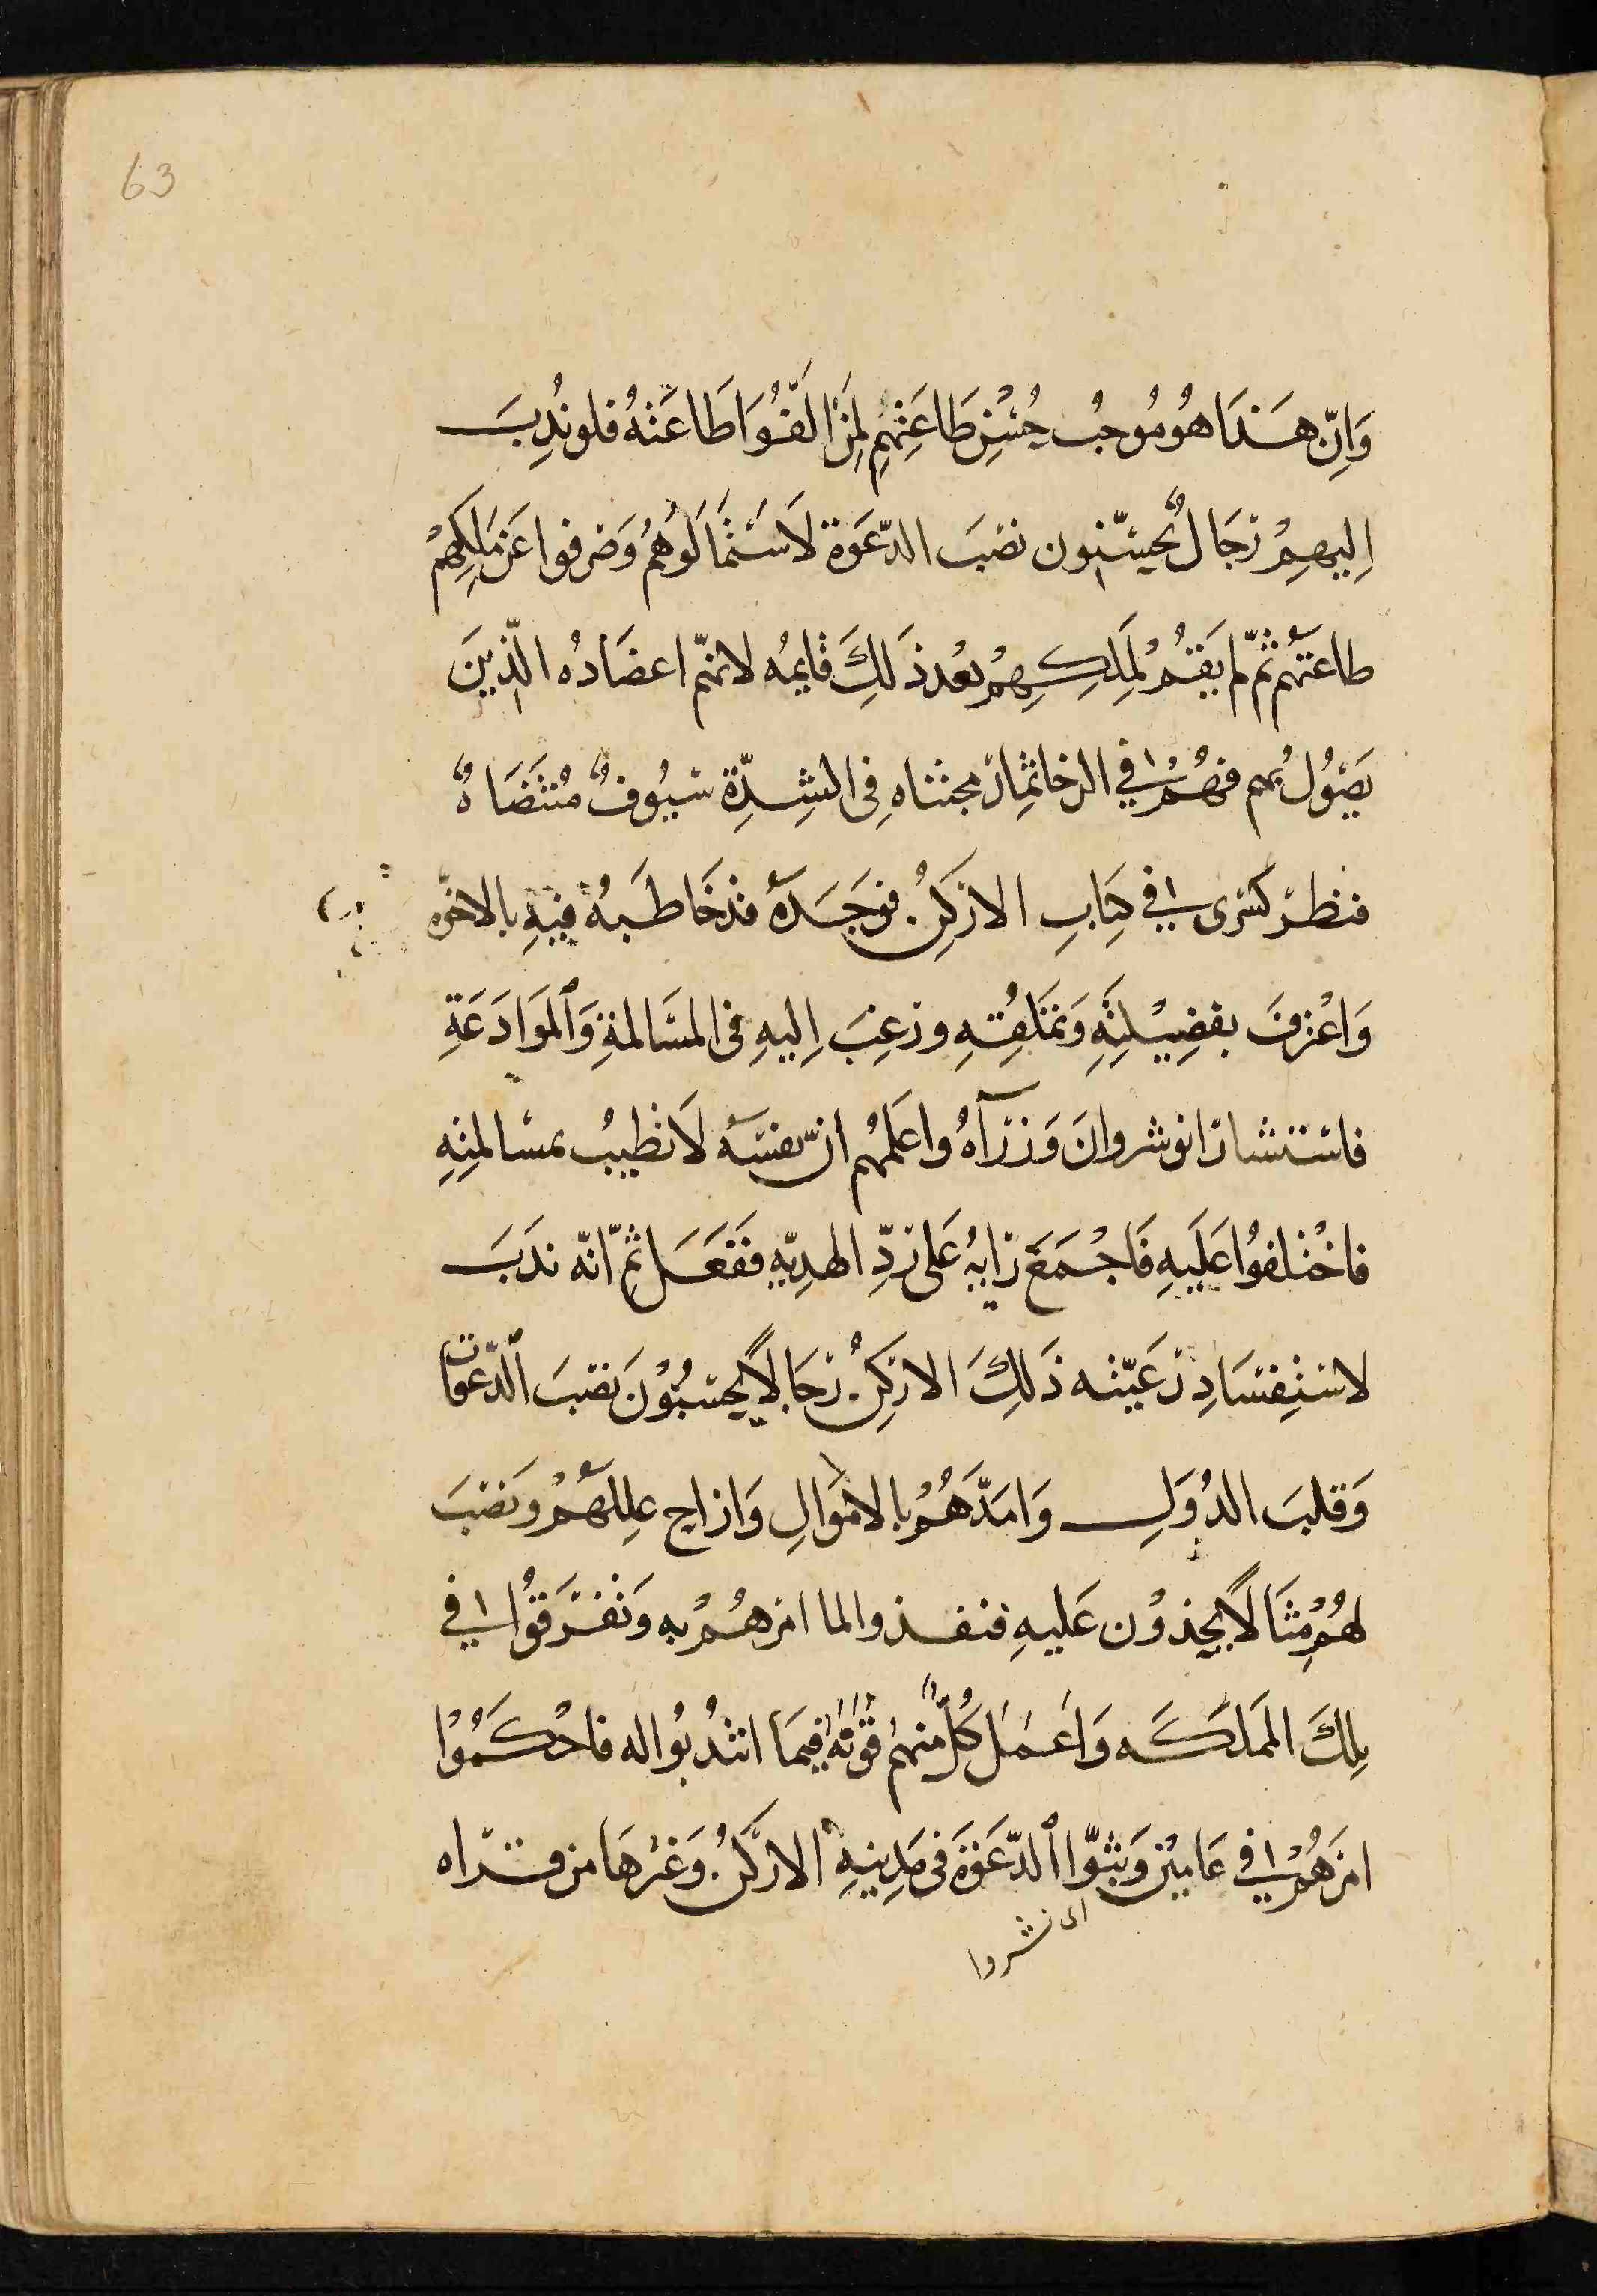 63
وَاِنّ هَذَا هُو مُوجبُ حُسْنِ طَاعَتِهِمِ لِمَنْ اَلِفُوا طَاعَتهُ فلو نُدِبَ
اِليهِمْ رجَالٌ يُحسّنون نصْبَ الدّعَوة لَاسَتْمَالَوُهُمُ وَصَرفوا عَن مَلِكِهِمْ
طاعَتَهُم ثمّ لم يَقُمْ لِمَلِكِهِمْ بَعْد ذَلِكَ قايمُه لانهّم اعضَادُه الّذينَ
يَصُولُ بهم فهُمُ في الرخا ثمِار مجتناه فِى الشِدّة سُيُوفٌ مُنْتَضَاهٌ
فنظر كسْرى في كِتَابِ الاركِنُ فوَجَدَهُ قد خَاطَبهُ فيهِ بالاخوّه
وَاعْترفَ بفضِيْلتِهِ وَتملقِهِ ورغِبَ اِليهِ فى المسَالمةِ وَالموَادَعَةِ
فاسْتشارَ انوشروانَ وَزرآهُ واعَلمهُم أنّ نفسَهُ لَا تطيبُ بمسَالمتِهِ
فاخْتلفوُا عَليَهِ فَاجْمَعَ رَايهُ عَلى رَدِّ الهدِيّهِ ففَعَلَ ثمّ انّه ندَبَ
لاسْتِفسَادِ رَعيّته ذَلِكَ الاركِنُ رجَالاً يُحسِنُوْنَ نصْبَ الدّعوات
وَقلبَ الدُوَلِ وَامَدّهُمْ بالامْوَالِ وَازاح عِللَهُمْ ونصَبَ
لهُمْ مِثَالاً يحذوْن عَليهِ فنفذوا لما امَرهُمْ بهِ وَتفَرَقوُا في
تِلكَ المَملكَه وَاعَملَ كُلٌّ منهُم قُوّتهُ فيمَا انتدُبوُا له فاحْكَمُوْا
امرَهُمْ في عَاميْنِ وَبثوّا الدّعَوةَ فى مَدِينهِ الاركنُ وَغيْرهَا من قراه
اى نشروا